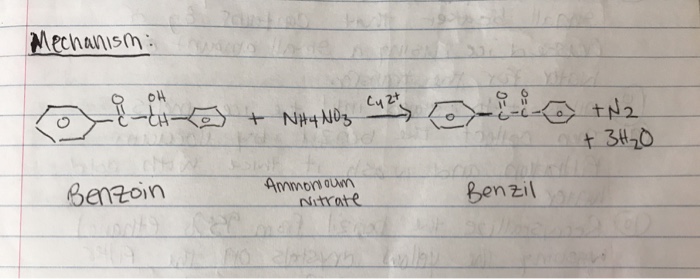 Mechanism:
O OH O O
C-CH + NH4NO3 Cu2+ → C-C + N2
+ 3H2O
Benzoin Ammonium Nitrate Benzil